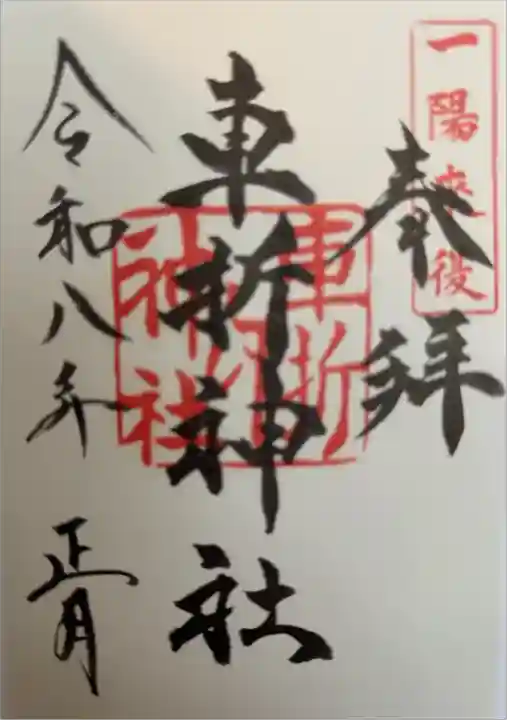 一陽来復
奉拝
車折神社
車折神社
令和八年
正月